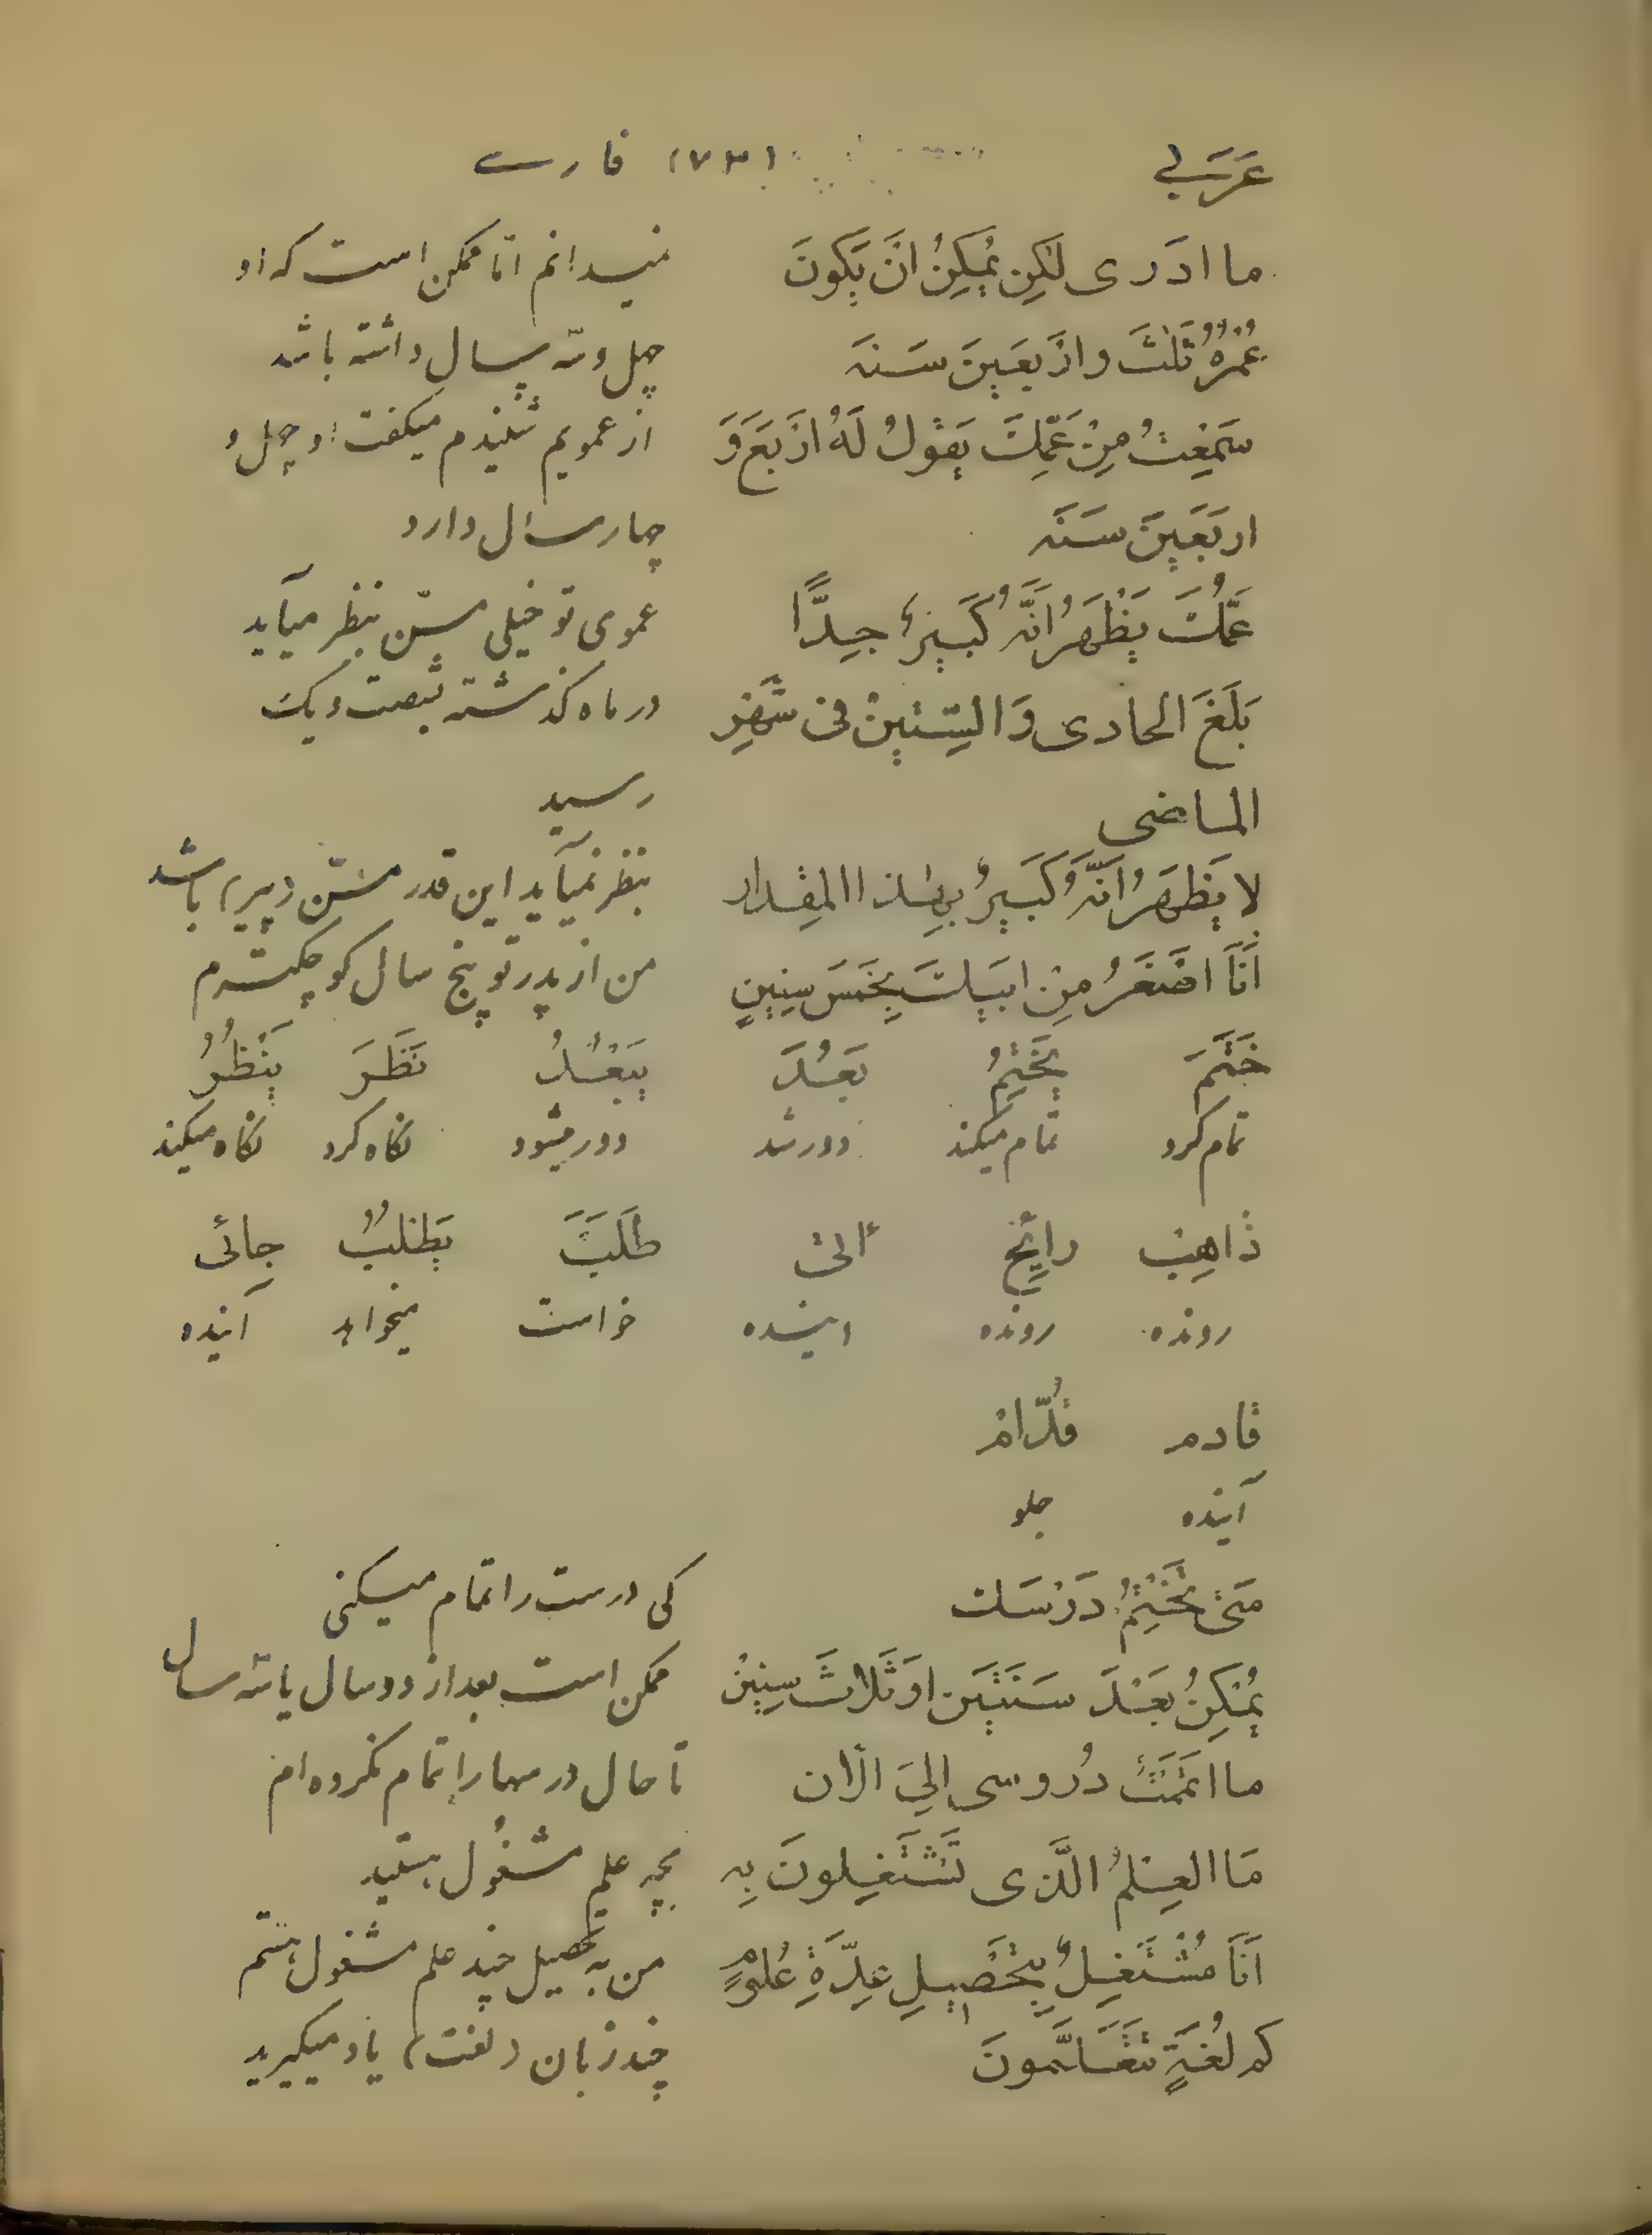 عَرَبی (۷۳) فارسی
ما ادَری لٰکِن یُمکِنُ انَ یَکونَ نمیدانم امّا ممکن است که او
عُمُرُهُ ثَلٰثَ و ارَبَعینَ سَنَه چهل و سّه سال داشته باشد
سَمِعِتُ مِنْ عَمِّكَ یَقولُ لَهُ ارَبَعَ وَ از عمویم شنیدم میگفت او چهل و
اربَعَینَ سَنَه چهار سال دارد
عَمُّكَ یَظْهَرُ انَّهُ کَبیرٌ جِدًّا عموی تو خیلی مسّن بنظر میآید
بَلَغَ الحادی وَ السِتینْ فی شَهْرِ در ماه گذشته بشصت و یک
الماضی رسید
لا یَظهَرُ انَّهُ کَبیرٌ بِهٰذا المِقدار بنظر نمیآید این قدر مسّن (پیر) باشد
اَنَا اصَغَرُ مِنْ ابیكَ بِخَمَسَ سِنینٍ من از پدر تو پنج سال کوچکترم
خَتَمَ یَخْتِمُ بَعُدَ یَبْعُدُ نَظَرَ یَنْظُرُ
تمام کرد تمام میکند دور شد دور میشود نگاه کرد نگاه میکند
ذاهِبْ رایِحْ طَلَبَ یَطْلُبُ جائی
رونده رونده خواست میخواهد آینده
قادم قُدّامْ
آینده جلو
مَتیٰ تَخْتِمُ دَرْسَك کی درست را تمام میکنی
یُمْکِنُ بَعْدَ سَنَتَیَن اوَ ثَلاثَ سِنینْ ممکن است بعد از دو سال یا سّه سال
ما اتَمَمَتُ دُروسی اِلیَ الآن تا حال درسهارا تمام نکرده ام
مَا العِلمُ الَّذی تَشْتَغِلونَ بِه بچه علم مشغول هستید
اَنَا مُشْتَغِلٌ بِتَحْصیلِ عِدَّةِ عُلومٍ من به تحصیل چند علم مشغول هستم
کم لُغَةٍ تَتَعَلَّمونَ چند زبان (لغت) یاد میگیرید